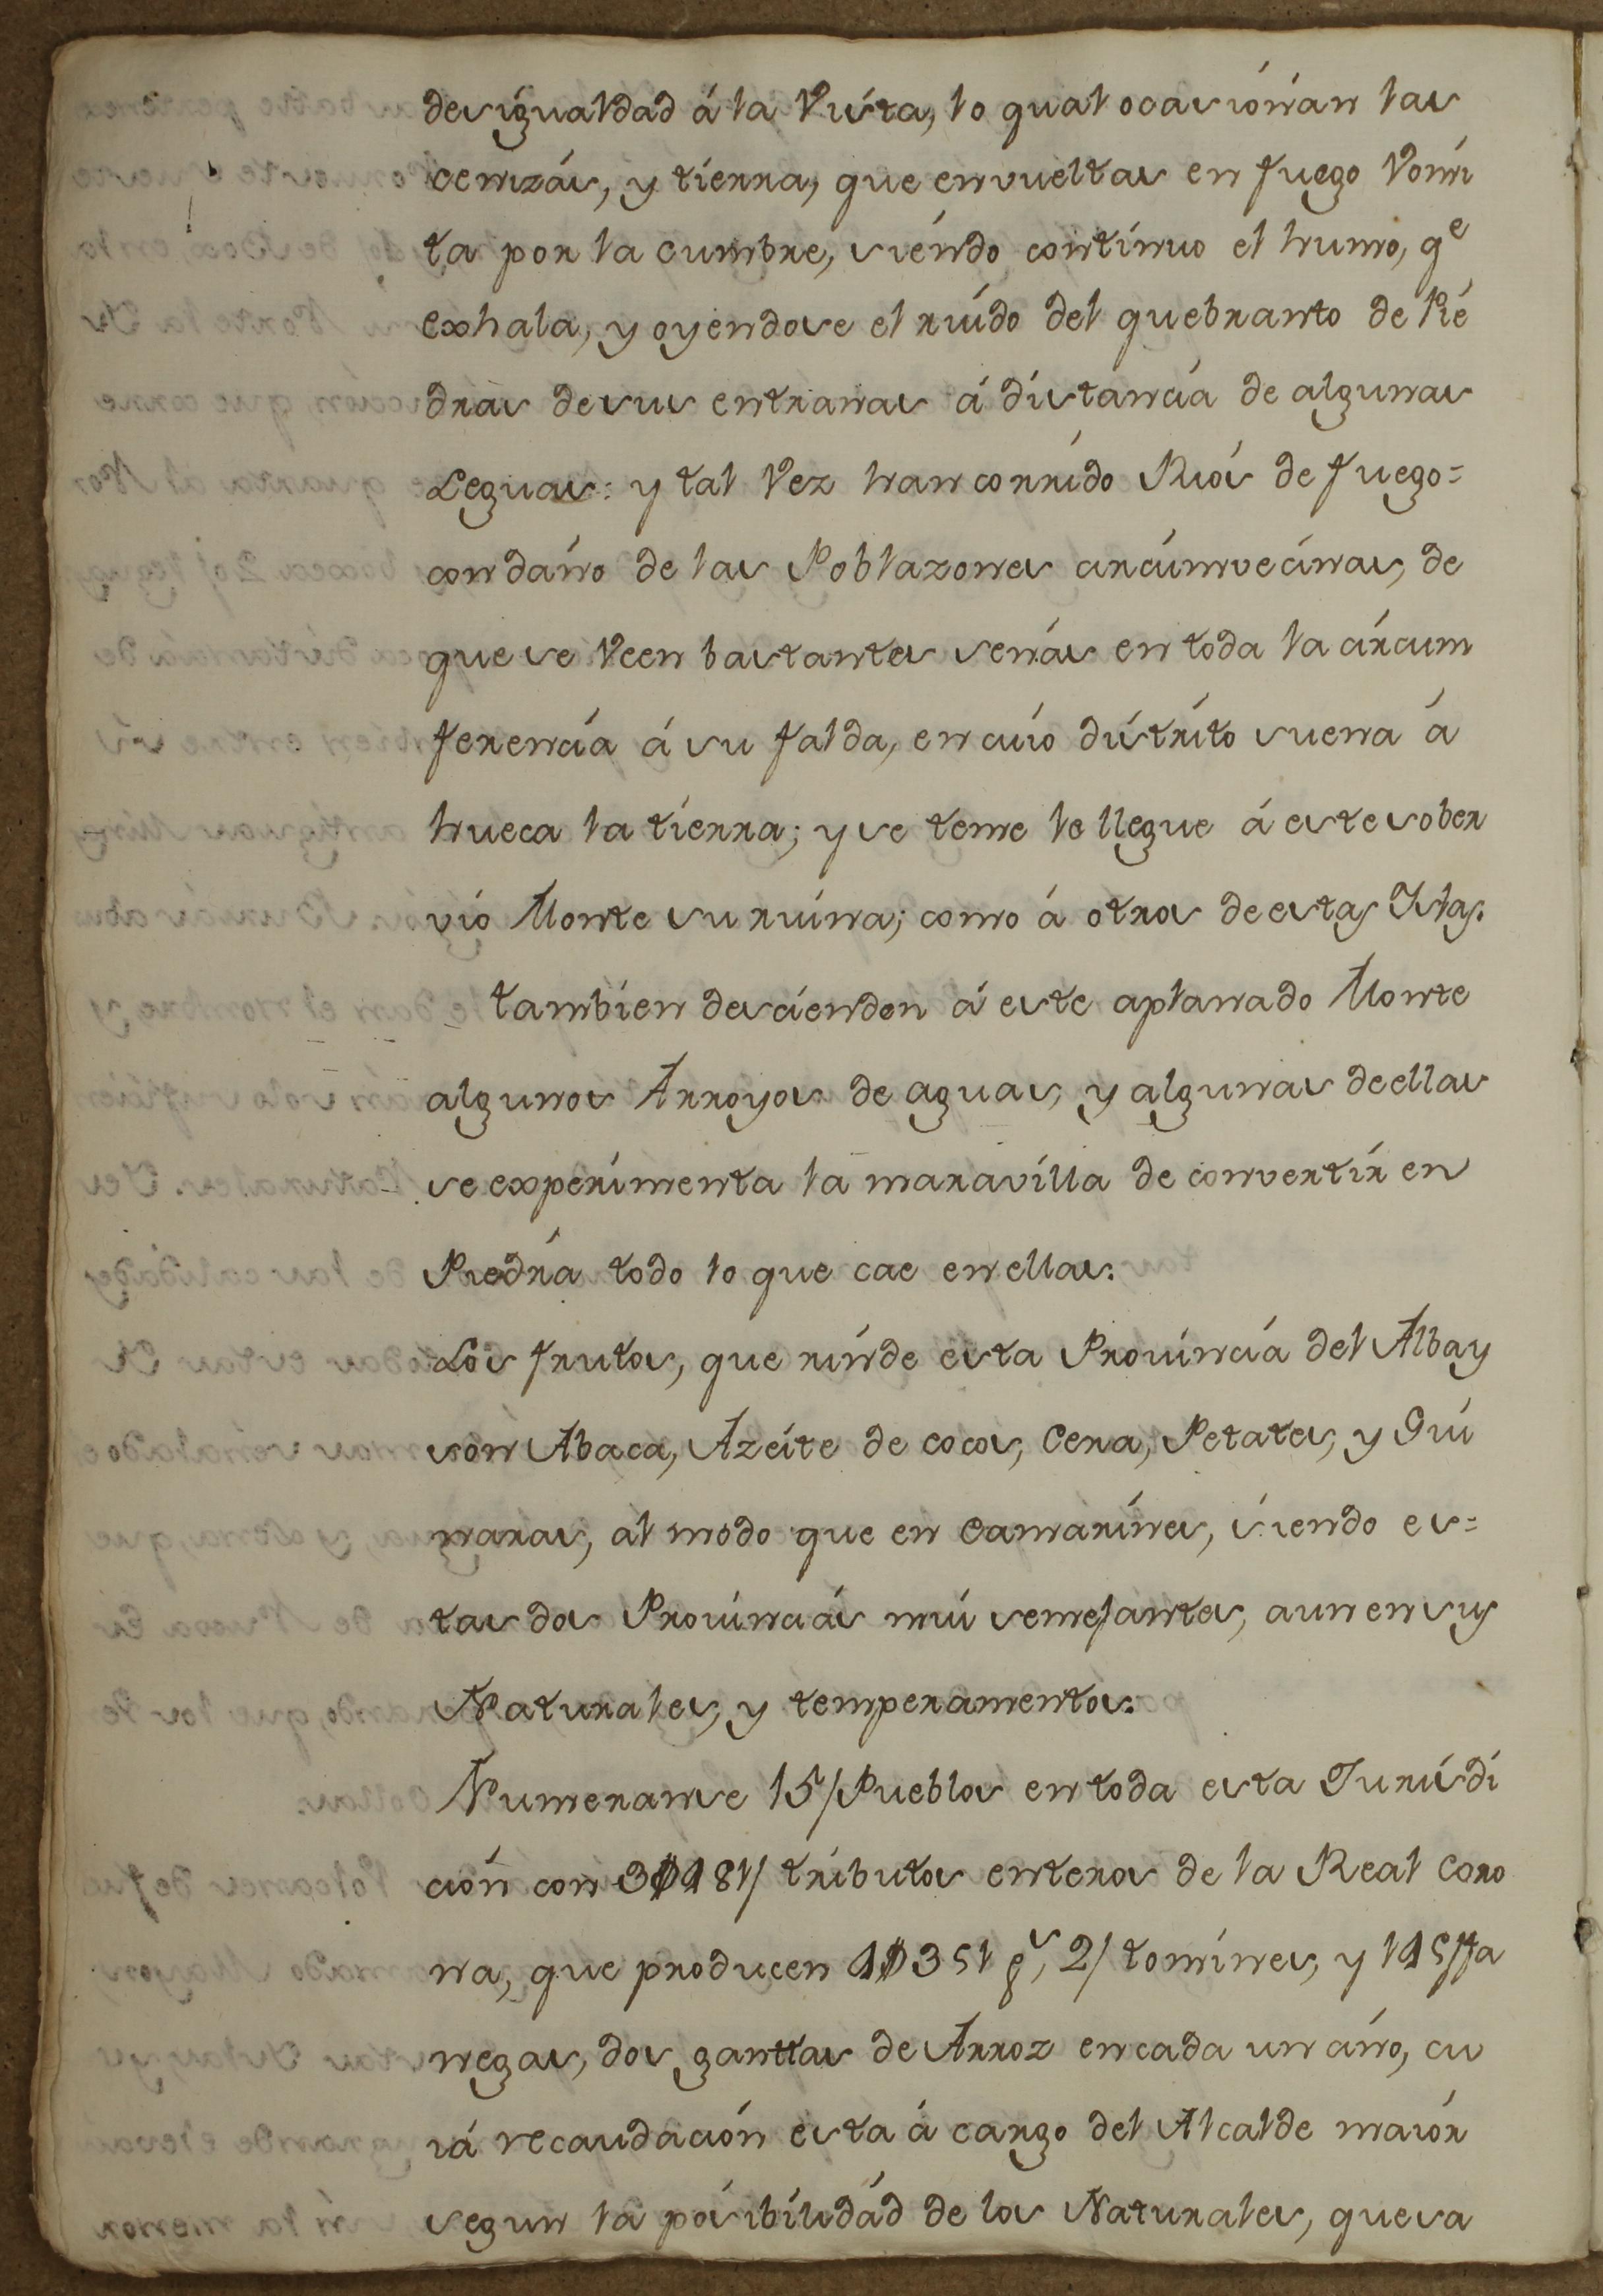 desigualdad á la Vista, lo qual ocasionan las
cenizas, y tierra, que envueltas en fuego Vomi
ta por la cumbre, siendo continuo el humo, q^e
exhala, y oyendose el ruido del quebranto de Pie
dras de sus entranas á distancia de algunas
Leguas: y tal Vez han corrido Rios de fuego=
con daño de las Poblazones circumvecinas, de
que se Veen bastantes señas en toda la circum
ferencia á su falda, en cuio distrito suena á
hueca la tierra; y se teme le llegue á este sober
vio Monte su ruina; como á otros de estas Islas.
tambien descienden á este aplanado Monte
algunos Arroyos de aguas, y algunas de ellas
se experimenta la maravilla de convertir en
Piedra todo lo que cae en ellas.
Los frutos, que rinde esta Provincia del Albay
son Abaca, Azeite de cocos, Cera, Petates, y Gui
naras, al modo que en Camarines, siendo es=
tas dos Provincias mui semejantes, aun en sus
Naturales, y temperamentos.
Numeranse 15/ Pueblos en toda esta Jurisdi
cion con tributos enteros de la Real coro
na, que producen p^s, 2/ tomines, y fa
negas, dos ganttas de Arroz en cada un año, cu
ia recaudacion esta á cargo del Alcalde maior
segun la posibilidad de los Naturales, que sa